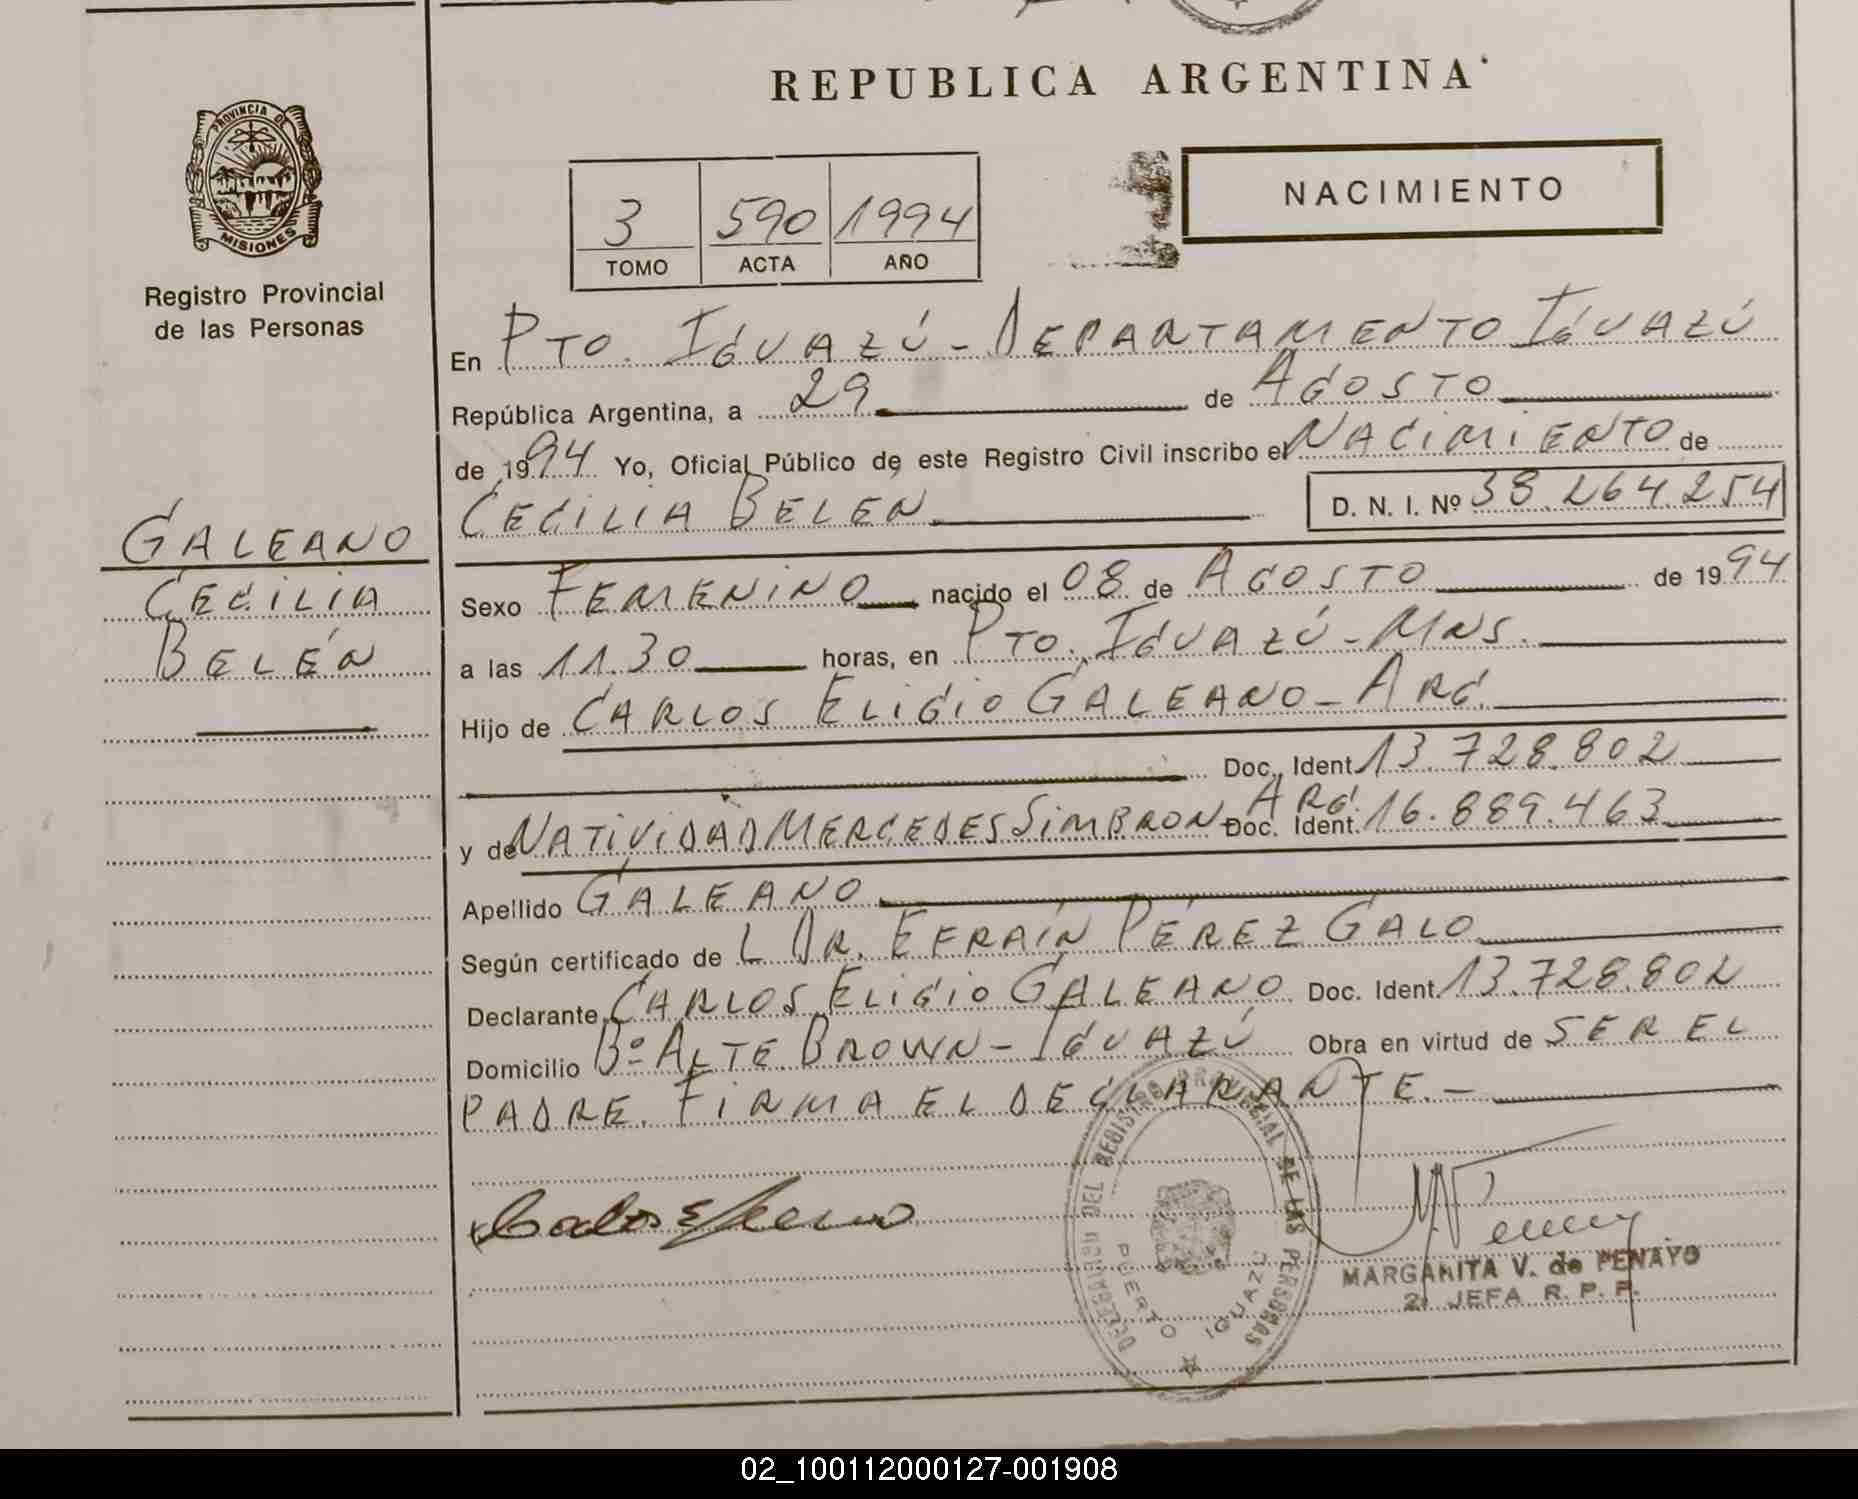 REPUBLICA ARGENTINA
PROVINCIA DE
MISIONES
Registro Provincial
de las Personas
3 590 1994
TOMO ACTA AÑO
NACIMIENTO
En PTO. IGUAZÚ - DEPARTAMENTO IGUAZÚ
República Argentina, a 29 de AGOSTO
de 1994 Yo, Oficial Público de este Registro Civil inscribo el NACIMIENTO de
CECILIA BELEN D. N. I. Nº 38.264.254
GALEANO
CECILIA
BELÉN
Sexo FEMENINO nacido el 08 de AGOSTO de 1994
a las 11.30 horas, en PTO. IGUAZÚ - MNS.
Hijo de CARLOS ELIGIO GALEANO - ARG.
Doc. Ident. 13.728.802
y de NATIVIDAD MERCEDES SIMBRON - ARG. Doc. Ident. 16.889.463
Apellido GALEANO
Según certificado de L DR. EFRAÍN PÉREZ GALO
Declarante CARLOS ELIGIO GALEANO Doc. Ident. 13.728.802
Domicilio Bº ALTE. BROWN - IGUAZÚ Obra en virtud de SER EL
PADRE. FIRMA EL DECLARANTE. -
DELEGACION DEL REGISTRO PROVINCIAL DE LAS PERSONAS
PUERTO IGUAZU
MARGARITA V. de PENAYO
2ª JEFA R. P. P.
02_100112000127-001908